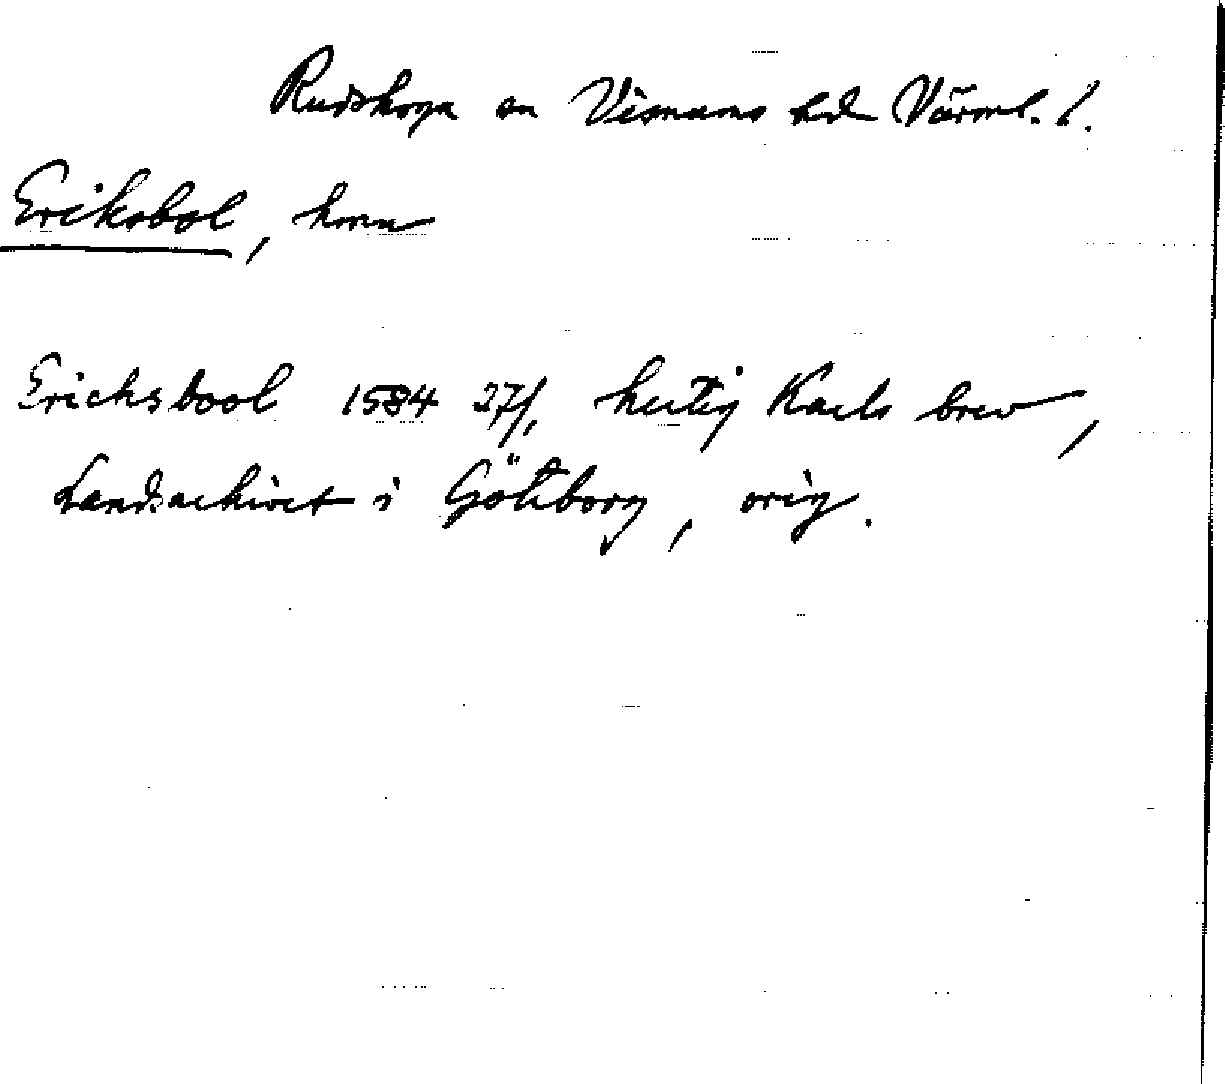 Rudskoga sn Visnums hd Värml. l.
Eriksbol, hmn
Erichsbool 1584 27/1 hertig Karls brev,
Landsarkivet i Göteborg, orig.